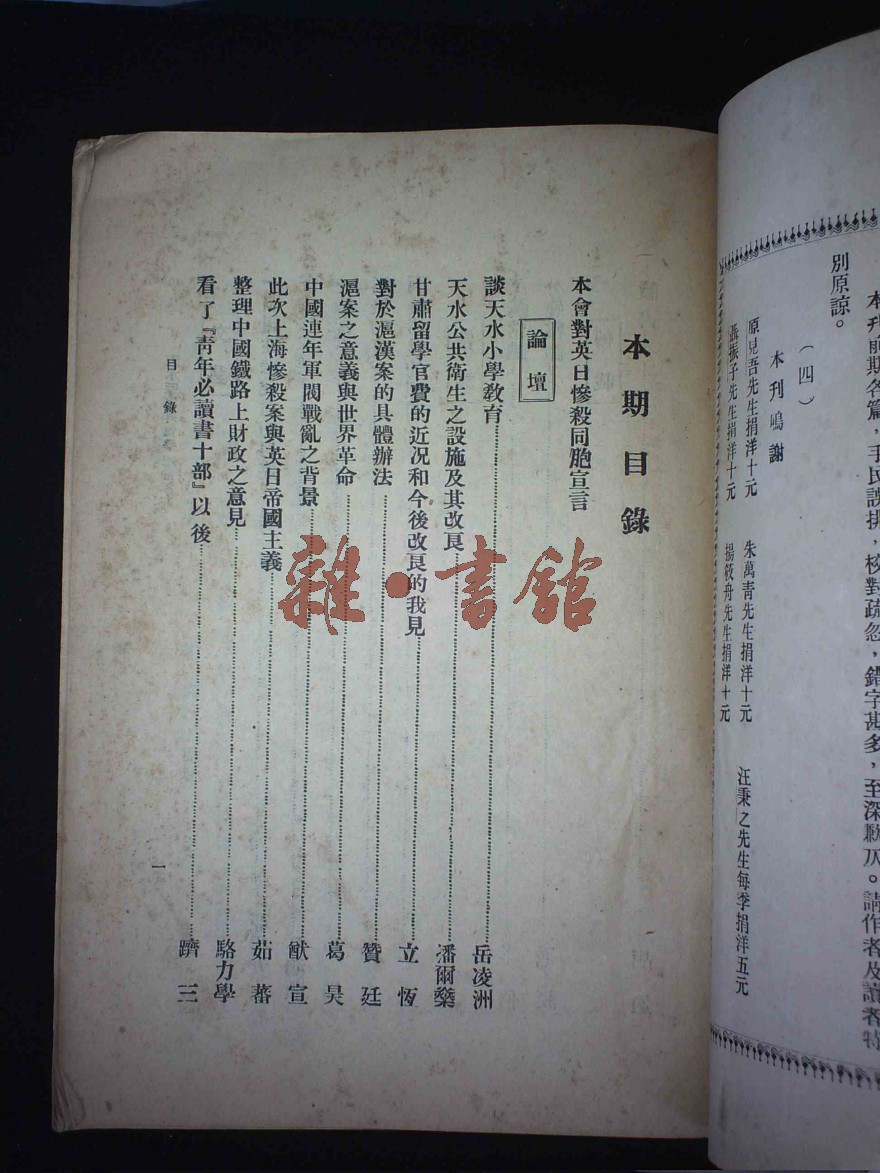 本刊前期各篇，手民誤排，校對疏忽，錯字甚多，至深歉仄。請作者及讀者特
別原諒。
（四）
本刊鳴謝
原見吾先生捐洋十元　朱萬青先生捐洋十元　汪秉之先生每季捐洋五元
聶振子先生捐洋十元　楊筱舟先生捐洋十元
本期目錄
本會對英日慘殺同胞宣言
論壇
談天水小學教育……岳凌洲
天水公共衛生之設施及其改良……潘爾燊
甘肅留學官費的近況和今後改良的我見……立恆
對於滬漢案的具體辦法……贊廷
滬案之意義與世界革命……葛昊
中國連年軍閥戰亂之背景……猷宣
此次上海慘殺案與英日帝國主義……茹蕃
整理中國鐵路上財政之意見……駱力學
看了『青年必讀書十部』以後……躋三
目錄
一
雜·書館